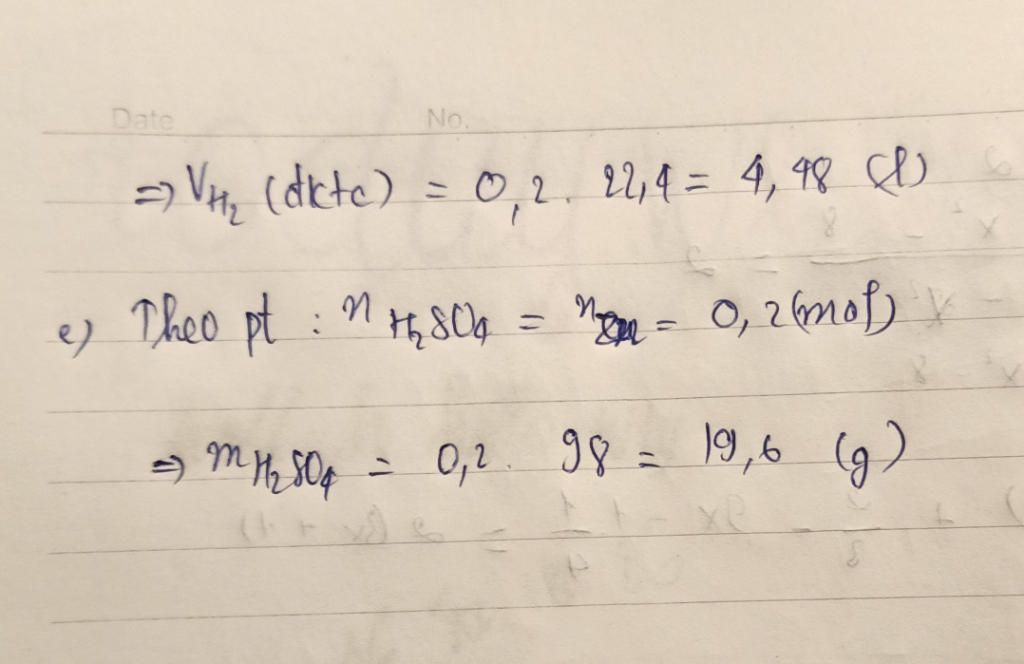 Date No.
=> V H₂ (đktc) = 0,2 . 22,4 = 4,48 (l)
e) Theo pt : n H₂SO₄ = n Zn = 0,2 (mol)
=> m H₂SO₄ = 0,2 . 98 = 19,6 (g)